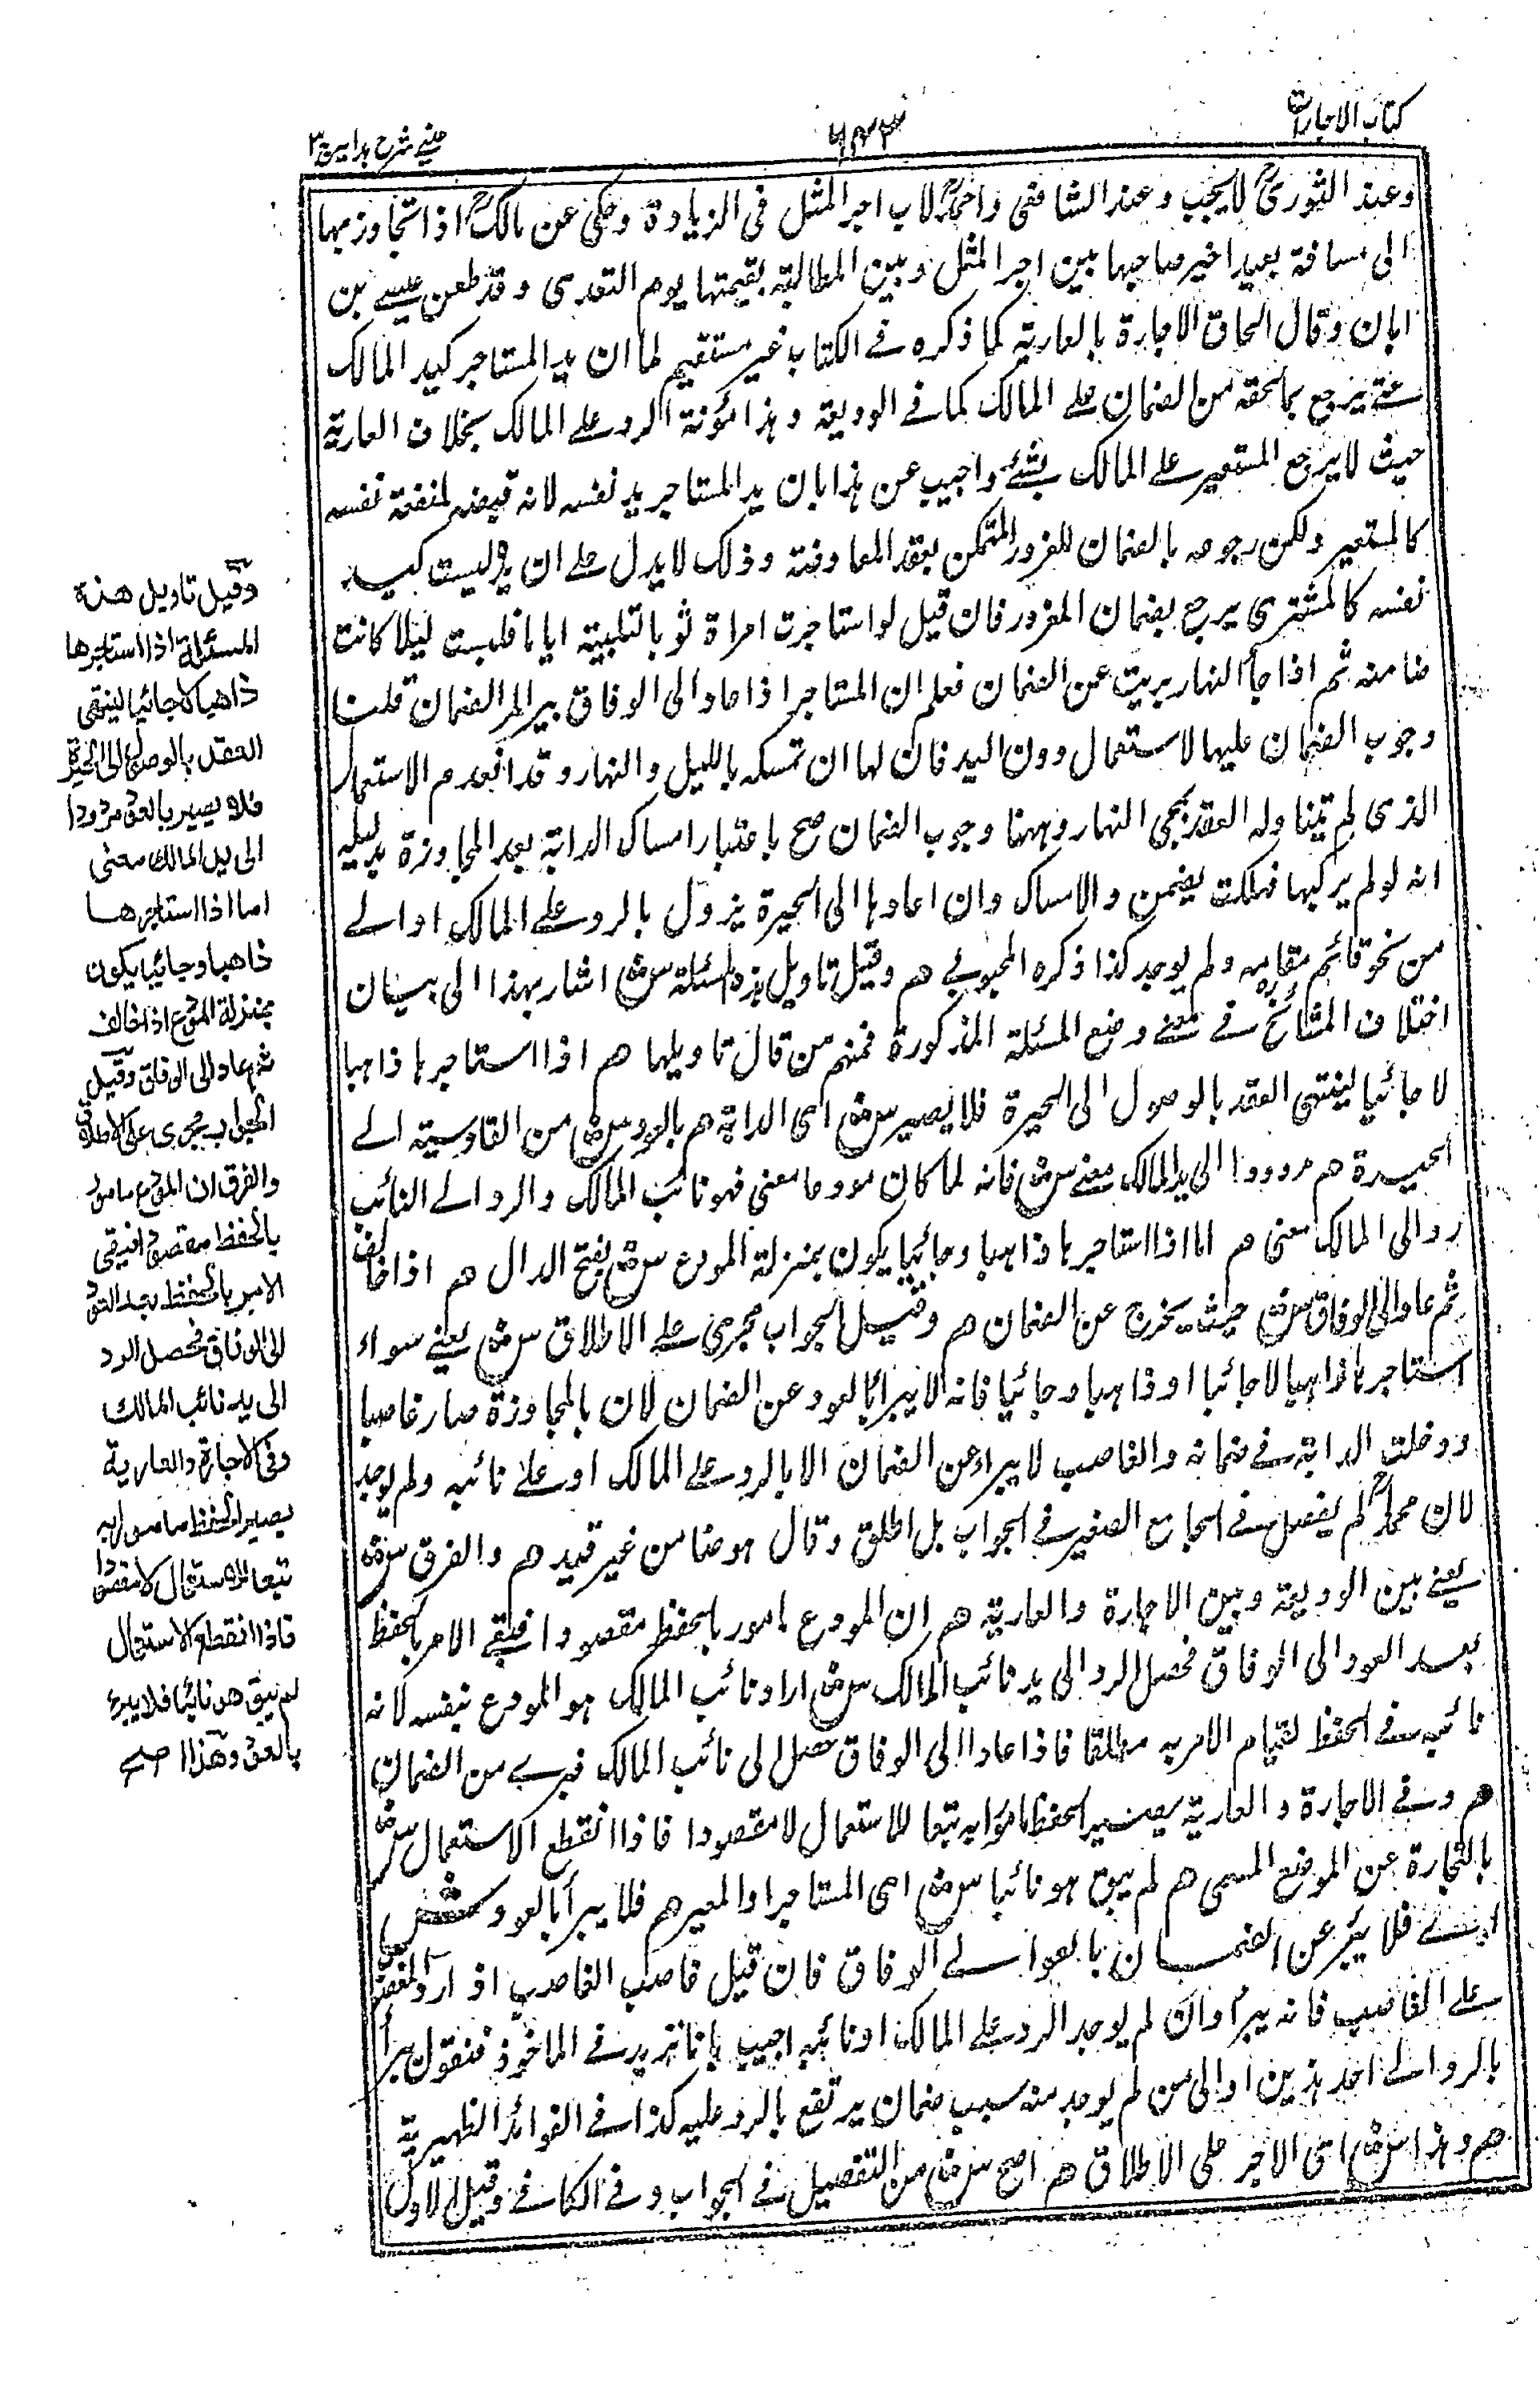 كتاب الاجارات
۶۴۳
عينے شرح ہدايہ ج۳
وعند الثورىؒ لا يجب وعند الشافعى واحمدؒ لاب اجر المثل فى الزيادة وحكى عن مالكؒ اذا تجاوز بہا
الى مسافة بعيدا خير صاحبہا بين اجر المثل وبين المطالبة بقيمتہا يوم التعدى وقد طعن عيسے بن
ابان وقال الحاق الاجارة بالعارية كما ذكره فے الكتاب غير مستقيم لما ان يد المستاجر كيد المالك
حتے يرجع بما لحقه من الضمان علے المالك كما فے الوديعة وہذا مؤنة الرد علے المالك بخلاف العارية
حيث لا يرجع المستعير علے المالك بشئے واجيب عن ہذا بان يد المستاجر يد نفسه لانه قبضه لمنفعة نفسه
كالمستعير ولكن رجوعه بالضمان للغرور المتمكن بعقد المعاوضة وذلك لا يدل علے ان يده ليست كيد
نفسه كالمشترى يرجع بضمان المغرور فان قيل لو استاجرت امراة ثوبا لتلبسه اياما فلبست ليلا كانت
ضامنه ثم اذا جاٴ النہار بريت عن الضمان فعلم ان المستاجر اذا عاد الى الوفاق يبرا من الضمان قلنا
وجوب الضمان عليہا لاستعمال دون اليد فان لہا ان تمسكه بالليل والنہار وقد انعدم الاستعمال
الذى لم يتناوله العقد بمجى النہار وہہنا وجوب الضمان صح باعتبار امساك الدابة بعد المجاوزة بدليل
انه لو لم يركبہا فہلكت يضمن والامساك وان اعادہا الى الحيرة يزول بالرد علے المالك او الے
من نحو قائم مقامه ولم يوجد كذا ذكره المحبوبے هم وقيل تاويل ہذه المسئلة سش اشار بہذا الى بيان
اختلاف المشائخؒ فے معنے وضع المسئلة المذكورة فمنہم من قال تاويلہا هم اذا استاجرہا ذاہبا
لا جائيا لينتہى العقد بالوصول الى الحيرة فلا يصير سش اى الدابة هم بالعود سش من القادسية الے
الحيرة هم مردودا الى يد المالك معنے سش فانه لما كان مودعا معنى فہو نائب المالك والرد الے النائب
رد الى المالك معنى هم اما اذا استاجرہا ذاہبا وجائيا يكون بمنزلة المودع سش بفتح الدال هم اذا خالف
ثم عاد الى الوفاق سش حيث يخرج عن الضمان هم وقيل الجواب مجرى علے الاطلاق سش يعنے سواء
استاجرہا ذاہبا لا جائبا او ذاہبا وجائيا فانه لا يبرا بالعود عن الضمان لان بالمجاوزة صار غاصبا
ودخلت الدابة فے ضمانه والغاصب لا يبراء عن الضمان الا بالرد علے المالك او علے نائبه ولم يوجد
لان محمداؒ لم يفصل فے الجامع الصغير فے الجواب بل اطلق وقال ہو ضامن غير قيد هم والفرق سش
يعنے بين الوديعة وبين الاجارة والعارية هم ان المودع مامور بالحفظ مقصودا فبقے الامر بالحفظ
بعد العود الى الوفاق فحصل الرد الى يد نائب المالك سش اراد نائب المالك ہو المودع بنفسه لانه
نائبه فے الحفظ لقيام الامر به مطلقا فاذا عاد الى الوفاق حصل الى نائب المالك فبرے من الضمان
هم وفے الاجارة والعارية يصير الحفظ مامورا به تبعا للاستعمال لا مقصودا فاذا انقطع الاستعمال سش
بالتجارة عن الموضع المسمى هم لم يبق ہو نائبا سش اى المستاجر او المعير هم فلا يبرأ بالعود سش
اى فلا يبرء عن الضمان بالعود الے الوفاق فان قيل غاصب الغاصب اذا رد المغصوب
علے الغاصب فانه يبرا وان لم يوجد الرد علے المالك او نائبه اجيب بانا نزيد فے الماخوذ فنقول يبرأ
بالرد الے احد ہذين او الى من لم يوجد منه سبب ضمان يرتفع بالرد عليه كذا فے الفوائد الظہيرية
هم وہذا سش اى الاجر على الاطلاق هم اصح سش من التفصيل فے الجواب وفے الكافے وقيل الاول
وقيل تاويل هذه
المسئلة اذا استاجرها
ذاهبا لا جائيا لينتهى
العقد بالوصول الى الحيرة
فلا يصير بالعود مردودا
الى يد المالك معنى
اما اذا استاجرها
ذاهبا وجائيا يكون
بمنزلة المودع اذا خالف
ثم عاد الى الوفاق وقيل
الجواب مجرى على الاطلاق
والفرق ان المودع مامور
بالحفظ مقصودا فبقى
الامر بالحفظ بعد العود
الى الوفاق فحصل الرد
الى يد نائب المالك
وفى الاجارة والعارية
يصير الحفظ مامورا به
تبعا للاستعمال لا مقصودا
فاذا انقطع الاستعمال
لم يبق هو نائبا فلا يبرء
بالعود وهذا اصح